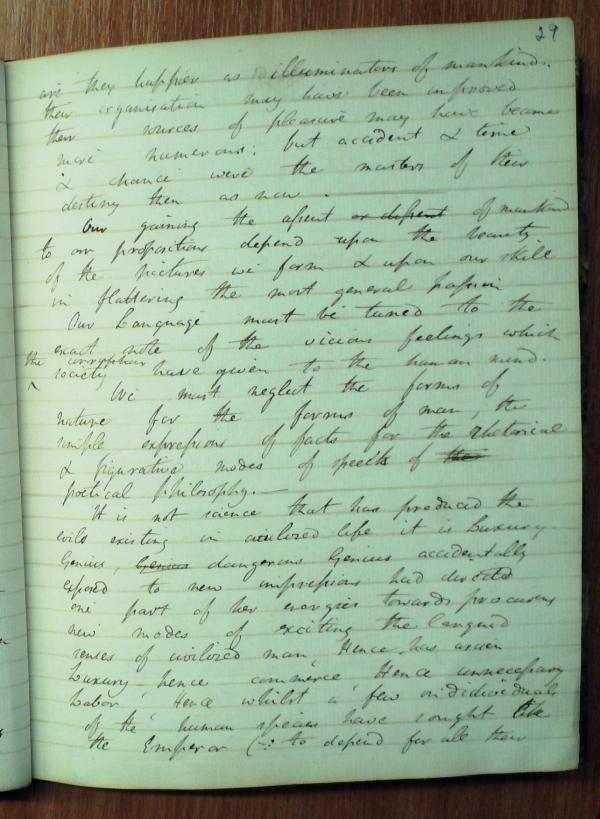 29
are they happier as illuminators of mankind.
their organisation may have been improved
their sources of pleasure may have become
more numerous: but accident & time
& chance were the masters of their
destiny then as now.
Our gaining the assent or dissent of mankind
to our propositions depend upon the beauty
of the pictures we form & upon our skill
in flattering the most general passion
Our Language must be tuned to the
exact note of the vicious feelings which
the corruptions
society have given to the human mind.
We must neglect the forms of
nature for the forms of man, the
simple expressions of facts for the rhetorical
& figurative modes of speech of the
poetical philosophy.—
It is not science that has produced the
evils existing in civilized life it is Luxury
Genius, Genius dangerous Genius accidentally
exposed to new impressions had directed
one part of her energies towards procuring
new modes of exciting the langued
senses of civilized man, Hence has arisen
Luxury hence commerce, Hence unnecessary
Labor, Hence whilst a few individuals
of the human species have sought like
the Emperor to depend for all their